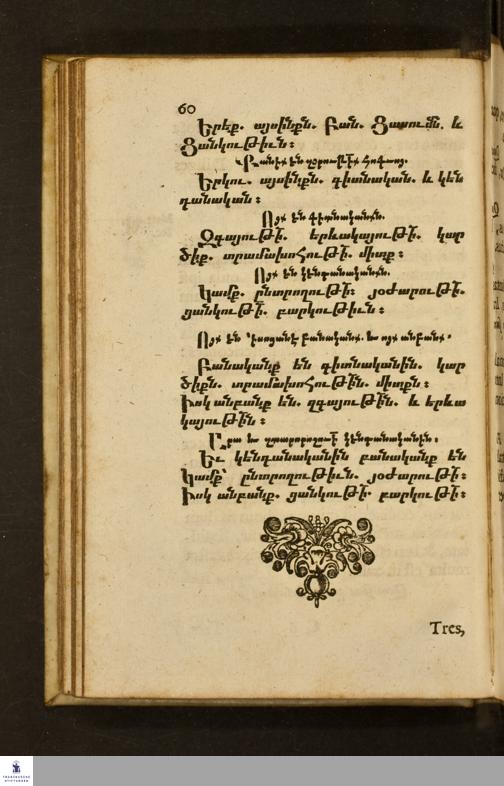 60
Երեք. այսինքն. Բան. Ցասումն. և
Ցանկութիւն։
Քանիք են զօրութիւնք հոգւոց.
Երկու. այսինքն. գիտնական. և կեն
դանական։
Ոյք են գիտնականն.
Զգայութի՛. երևակայութի՛. կար
ծիք. տրամախոհութի՛. միտք։
Ոյք են կենդանականն.
Կամք. ընտրողութի՛։ յօժարութի՛.
ցանկութի՛. բարկութիւն։
Ոյք են
բանականք. և ոյք անբանք.
Բանականք են գիտնականին. կար
ծիքն. տրամախոհութի՛ն. միտքն։
Իսկ անբանք են. զգայութի՛ն. և երևա
կայութի՛ն։
կենդանականին.
Եւ կենդանականին բանականք են
կամք՝ ընտրողութիւն. յօժարութի՛։
Իսկ անբանք. ցանկութի՛. բարկութի՛։
Tres,